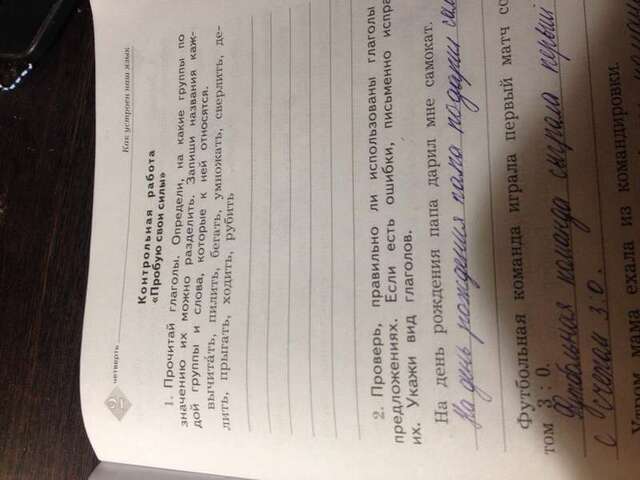 2 четверть
Как устроен наш язык
Контрольная работа
«Пробую свои силы»
1. Прочитай глаголы. Определи, на какие группы по
значению их можно разделить. Запиши названия каж-
дой группы и слова, которые к ней относятся.
вычитать, пилить, бегать, умножать, сверлить, де-
лить, прыгать, ходить, рубить
2. Проверь, правильно ли использованы глаголы
предложениях. Если есть ошибки, письменно испра
их. Укажи вид глаголов.
На день рождения папа дарил мне самокат.
На день рождения папа подарил
Футбольная команда играла первый матч со
том 3 : 0.
Футбольная команда сыграла первый
с счетом 3:0.
ехала из командировки.